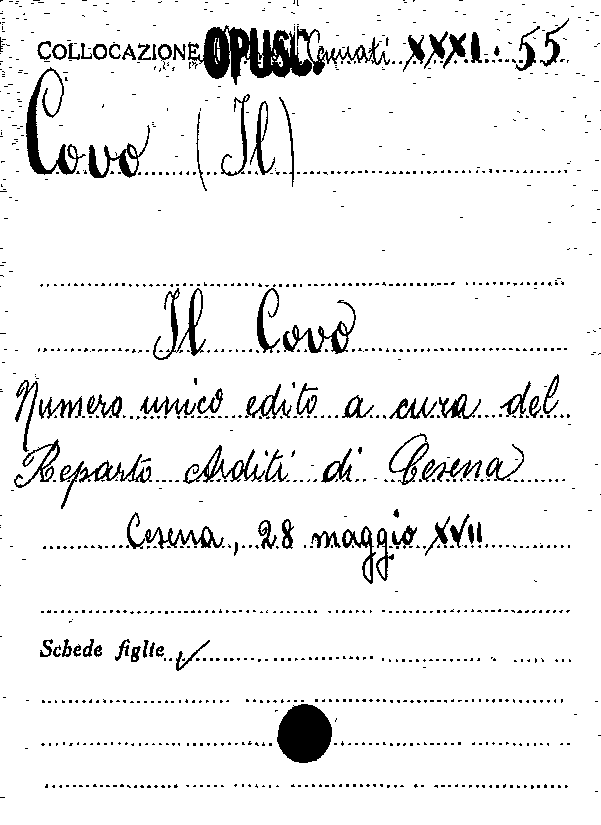 COLLOCAZIONE OPUSC. XXXI. 55
Covo (Il)
Il Covo
Numero unico edito a cura del
Reparto Arditi di Cesena
Cesena, 28 maggio XVII
Schede figlie ✓